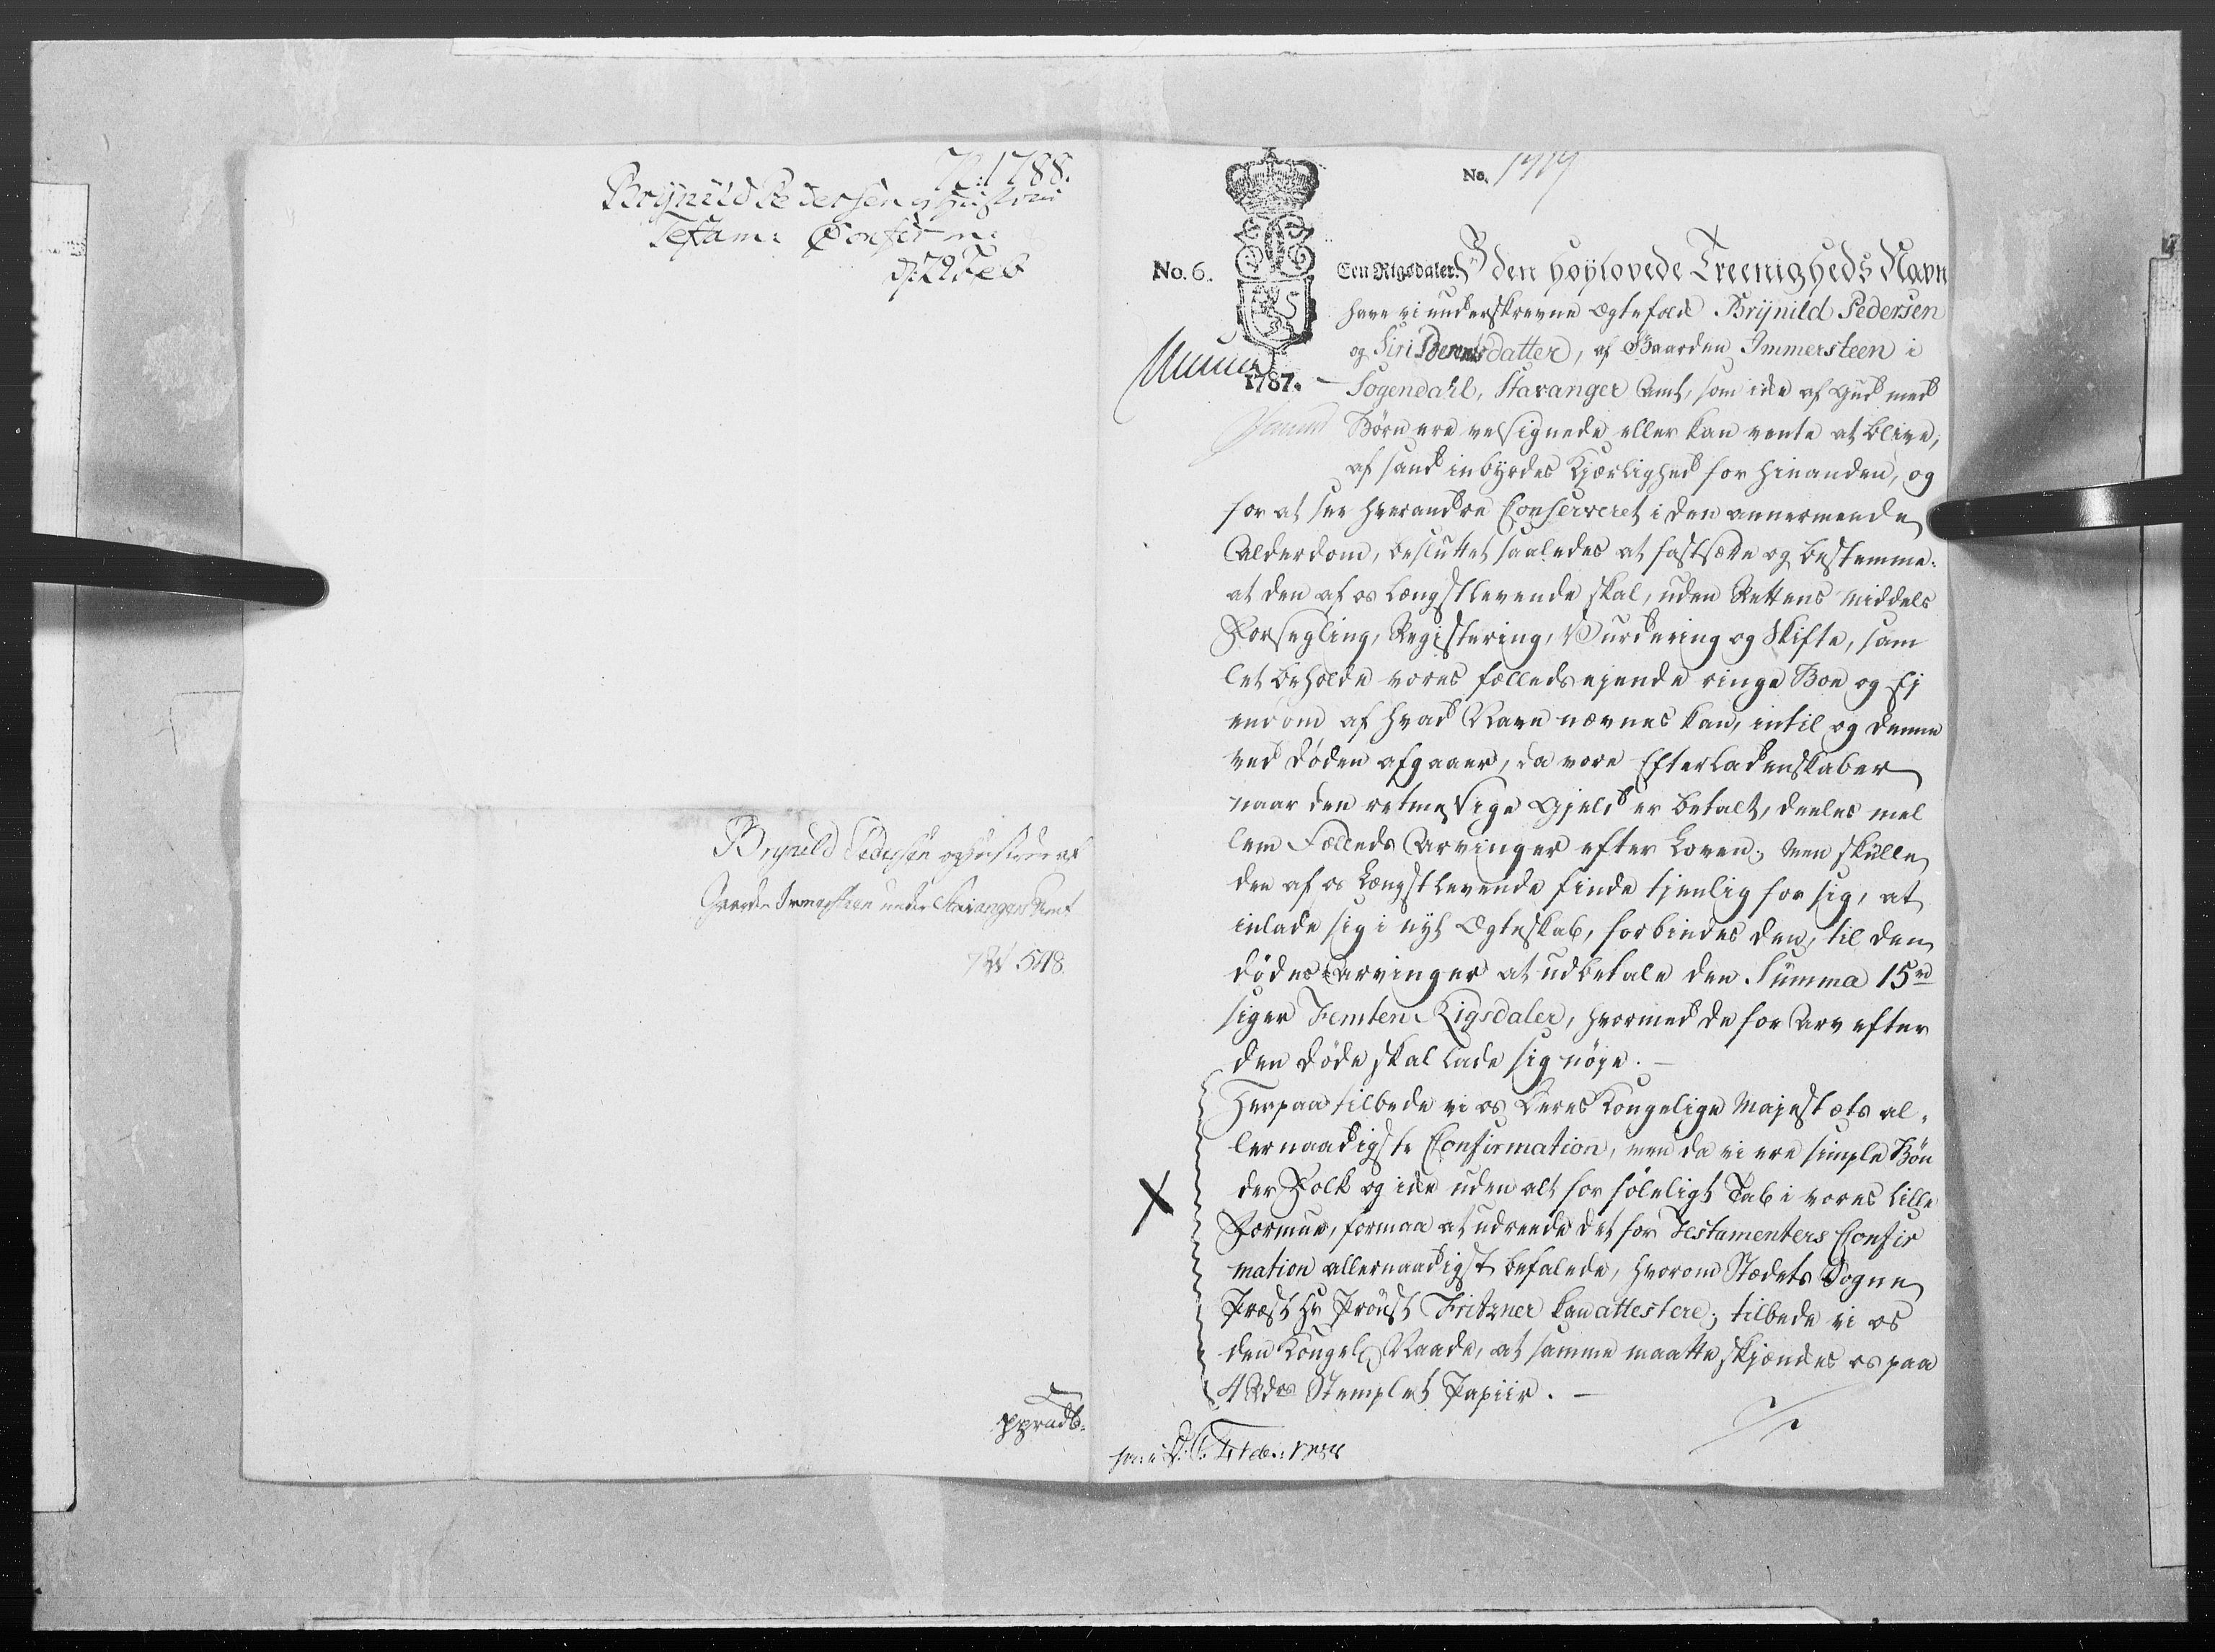 72. 1788.
Brynild Pedersen og Hustrues
Testam: Confirm:
d: 29 Feb
Brynild Pedersen og Hustrue af
Gaarden Immersteen under Stavanger Amt
548.
No. 1919
No. 6.
Een Rigsdaler.
1787.
I den høylovede Treenigheds Navn
have vi underskrevne Ægtefolk Brynild Pedersen
og Siri Berentsdatter, af Gaarden Immersteen i
Sogendahl, Stavanger Amt, som ikke af Gud med
Børn ere velsignede eller kan vente at blive,
af sand inbyrdes Kjærlighed for hinanden, og
for at see hverandre Conserveret i den annermende
Alderdom, besluttet saaledes at fastsætte og bestemme:
at den af os Længstlevende skal, uden Rettens Middels
Forsegling, Registering, Vurdering og Skifte, sam
let beholde vores fælleds ejende ringe Boe og Ej
endom af hvad Navn nævnes kan, intil og denne
ved Døden afgaaer, da vore Efterladenskaber
naar den retmessige Gjeld er betalt, deeles mel
lem Fælleds Arvinger efter Loven; Men skulle
den af os Længstlevende finde tjenlig for sig, at
inlade sig i nyt Ægteskab, forbindes den, til den
dødes Arvinger at udbetale den Summa 15 rd
siger Femten Rigsdaler, hvormed de for Arv efter
den døde skal lade sig nøje. —
Herpaa tilbede vi os Deres Kongelige Majestæts al,
lernaadigste Confirmation, men da vi ere simple Bøn
der Folk og ikke uden alt for føleligt Tab i vores lille
Formue, formaa at udreede det for Testamenters Confir
mation allernaadigst befalede, hvorom Stædets Sogne
Præst Hr Proust Fritzner kan attestere; tilbede vi os
den Kongel: Naade, at samme maatte skjænkes os paa
4 Rdrs Stemplet Papiir. —